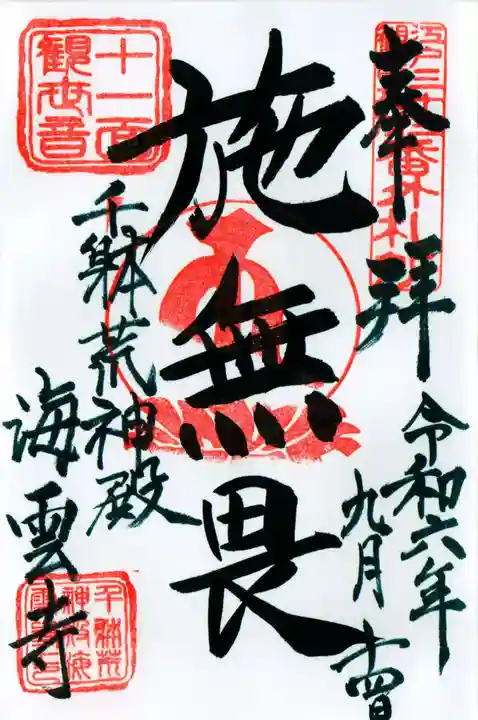 奉拝
令和六年
九月十四日
施無畏
十一面
観世音
千躰荒神殿
海雲寺
千躰荒